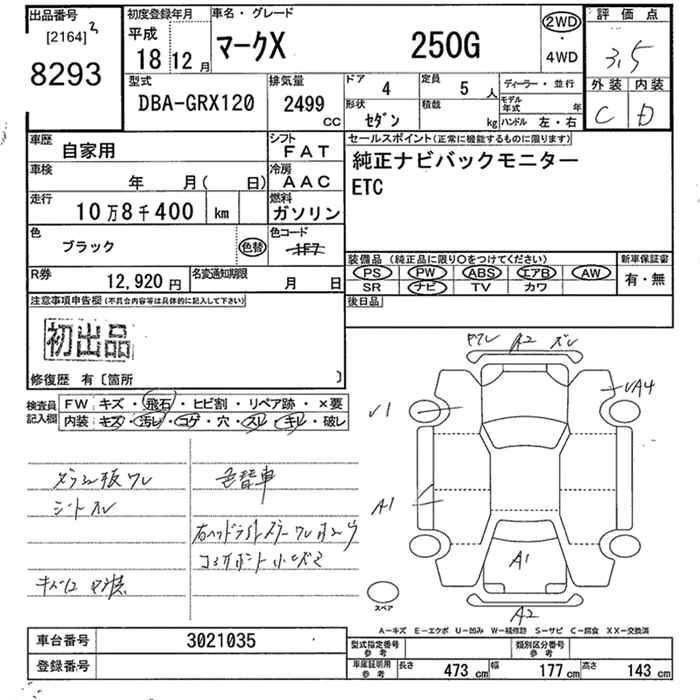 出品番号
[2164] 3
8293
初度登録年月
平成
18 12 月
車名・グレード
マークX 250G
2WD
・
4WD
評価点
3.5
外装 内装
C D
型式
DBA-GRX120
排気量
2499
CC
ドア
4
定員
5 人
形状
セダン
積載
kg
ディーラー・並行
モデル年式 年
ハンドル 左・右
車歴
自家用
シフト
FAT
車検
年 月( 日)
冷房
AAC
走行
10万8千400 km
燃料
ガソリン
色
ブラック
色替
色コード
1F7
R券
12,920 円
名変通知期限
月 日
セールスポイント(正常に機能するものに限ります)
純正ナビバックモニター
ETC
装備品 (純正品に限り○をつけてください)
PS PW ABS エアB AW
SR ナビ TV カワ
新車保証書
有・無
後日品
注意事項申告欄(不具合内容等は具体的に記入して下さい)
初出品
修復歴 有〔箇所 〕
検査員
記入欄
FW キズ・飛石・ヒビ割・リペア跡・×要
内装 キズ・汚レ・コゲ・穴・スレ・キレ・破レ
ワレ A2 ズレ
UA4
U1
A1
A1
A2
スペア
シートスレ
色替車
A-キズ E-エクボ U-凹み W-補修跡 S-サビ C-腐食 XX-交換済
車台番号
3021035
登録番号
型式指定番号
参考
類別区分番号
参考
車庫証明用
参考
長さ 473 cm 幅 177 cm 高さ 143 cm